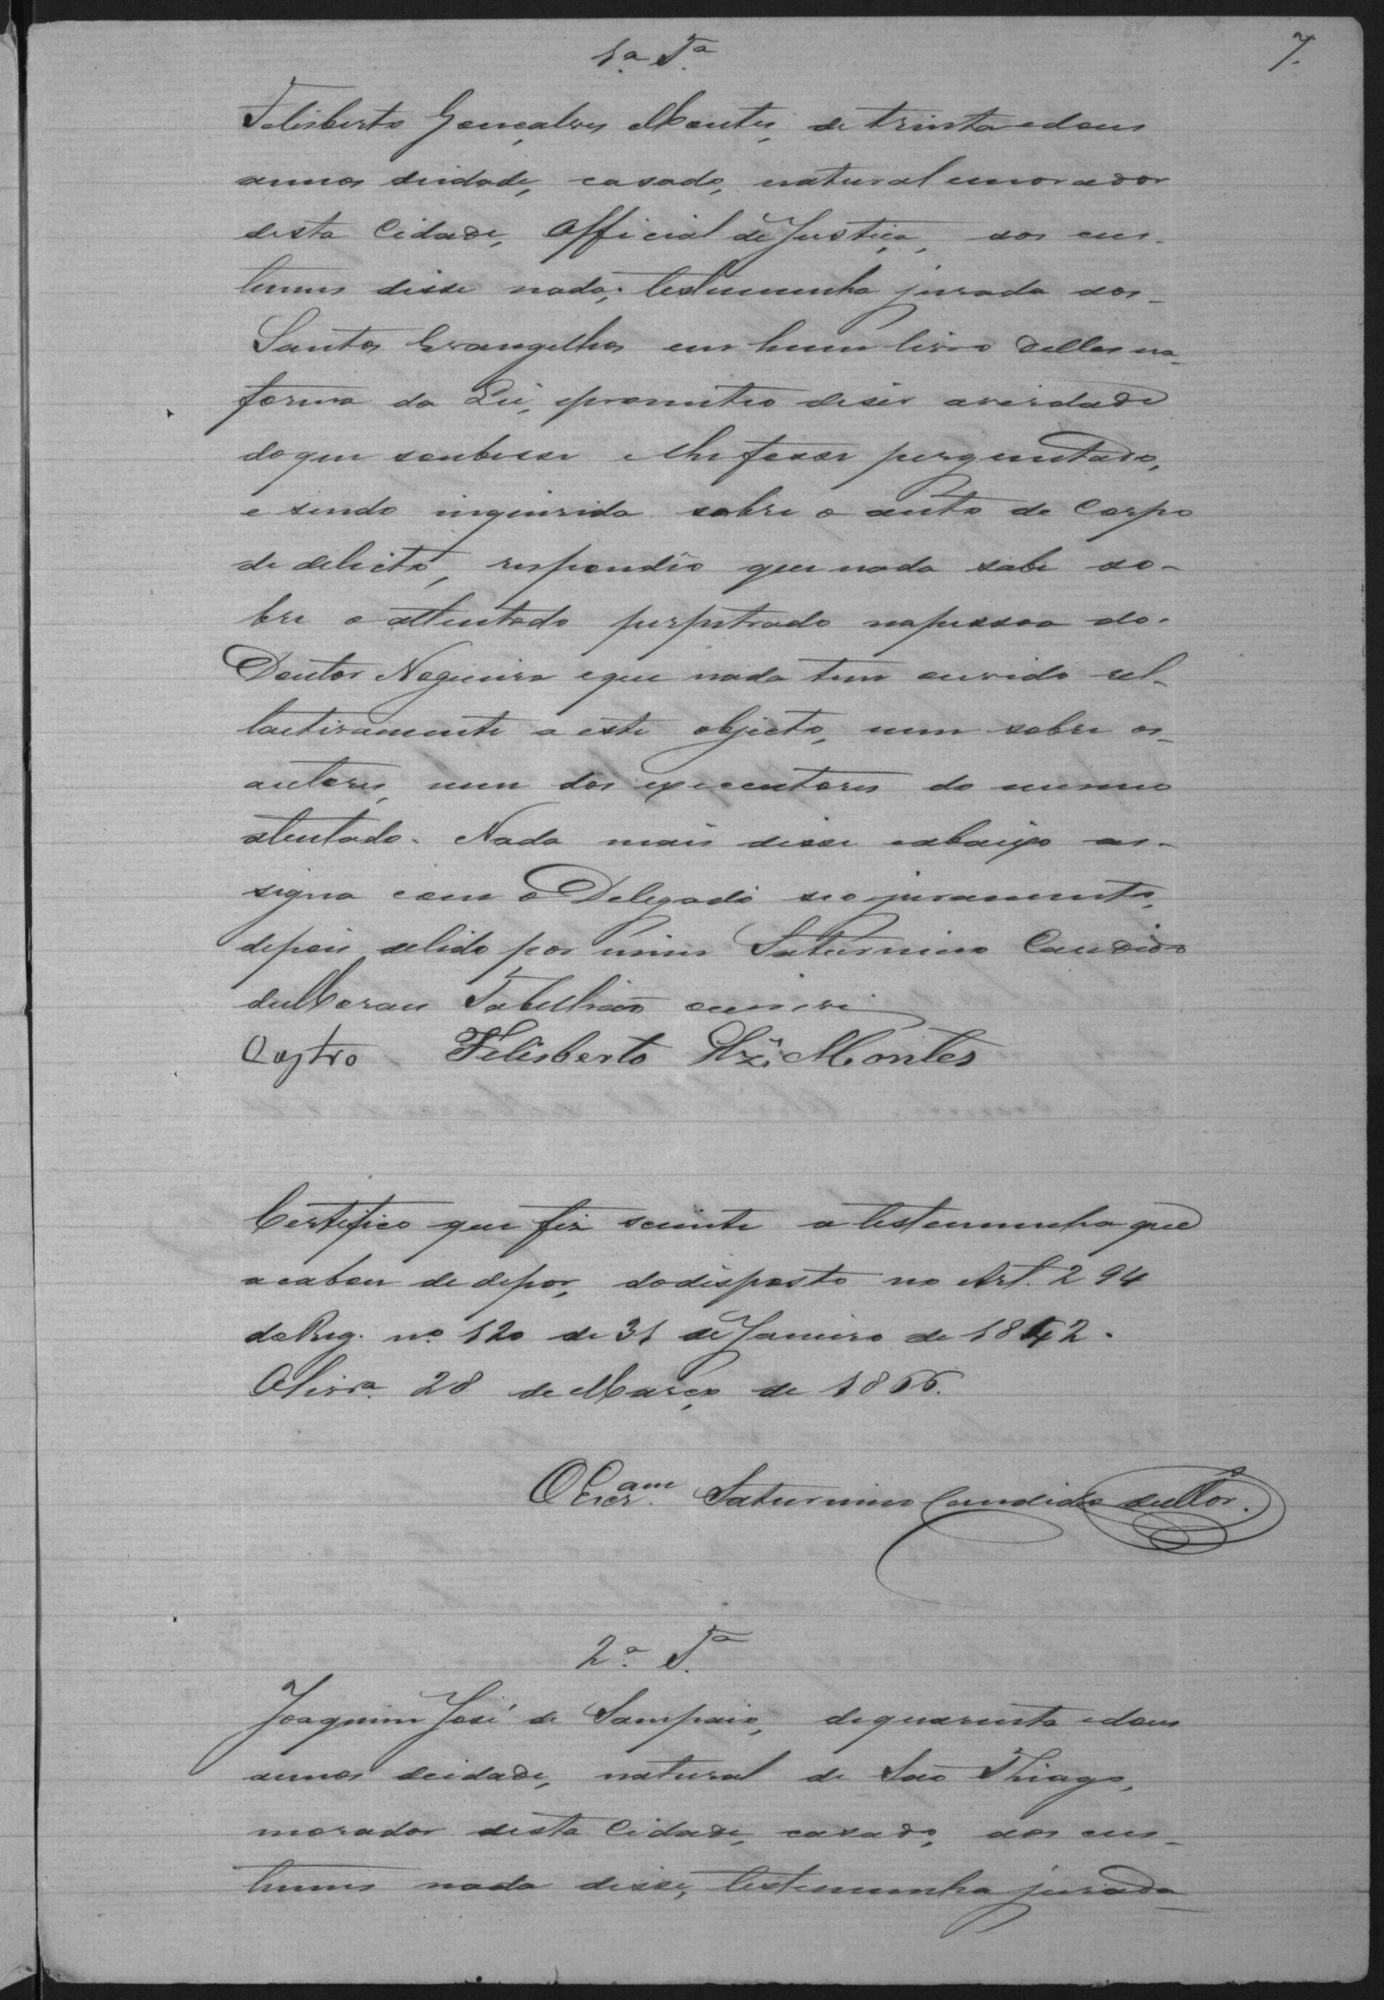 7.
1.a T.a
Felisberto Gonçalves Montes, de trinta edous
annos deidade, casado, natural emorador
desta Cidade, Official de Justiça, aos cus-
tumes disse nada; testemunha jurada aos
Santos Evangelhos em hum livro delles na
forma da Lei, eprometteo diser averdade
doque soubesse elhe fosse perguntado,
e sendo inquirida sobre o auto de Corpo
de delicto, respondêo que nada sabe so-
bre o attentado perpetrado napessoa do
Doutor Nogueira eque nada tem ouvido rel-
lactivamente a este objecto, nem sobre os
autores, nem dos executores do mesmo
attentado. Nada mais disse eabaixo as-
signa com o Delegado seo juramento,
depois delido por mim Saturnino Candido
deMoraes Tabellião oescrevi
Castro Felisberto Glz. Montes
Certifico que fiz sciente a testemunha que
acabou de depor, dodisposto no Art. 294
doReg. no 120 de 31 de Janeiro de 1842.
Olivra. 28 de Março de 1866.
O Escr.am Saturnino Candido deMor.
2.a T.a
Joaquim José de Sampaio, dequarenta edous
annos deidade, natural de São Thiago,
morador desta Cidade, casado, aos cus-
tumes nada disse, testemunha jurada